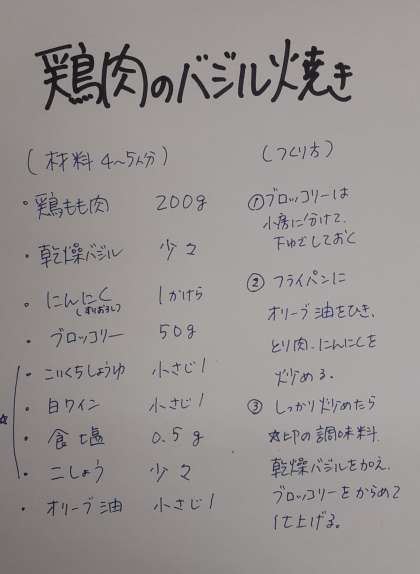 鶏肉のバジル焼き
(材料 4〜5人分)
・鶏もも肉 200g
・乾燥バジル 少々
・にんにく 1かけら
(すりおろし)
・ブロッコリー 50g
・こいくちしょうゆ 小さじ1
・白ワイン 小さじ1
☆
・食塩 0.5g
・こしょう 少々
・オリーブ油 小さじ1
(つくり方)
①ブロッコリーは
小房に分けて、
下ゆでしておく
②フライパンに
オリーブ油をひき、
とり肉、にんにくを
炒める。
③しっかり炒めたら
☆印の調味料、
乾燥バジルを加え、
ブロッコリーをからめて
仕上げる。